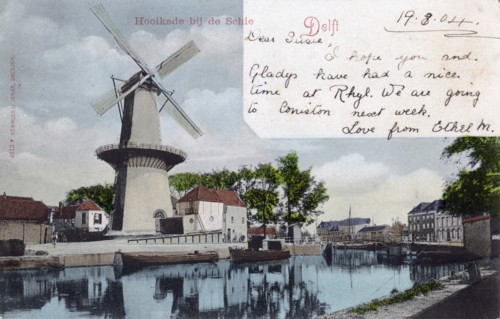 Hooikade bij de Schie
Delft
19.8.04.
Dear Susie,
I hope you and.
Gladys have had a nice.
time at Rhyl. We are going
to Coniston next week.
Love from Ethel M.